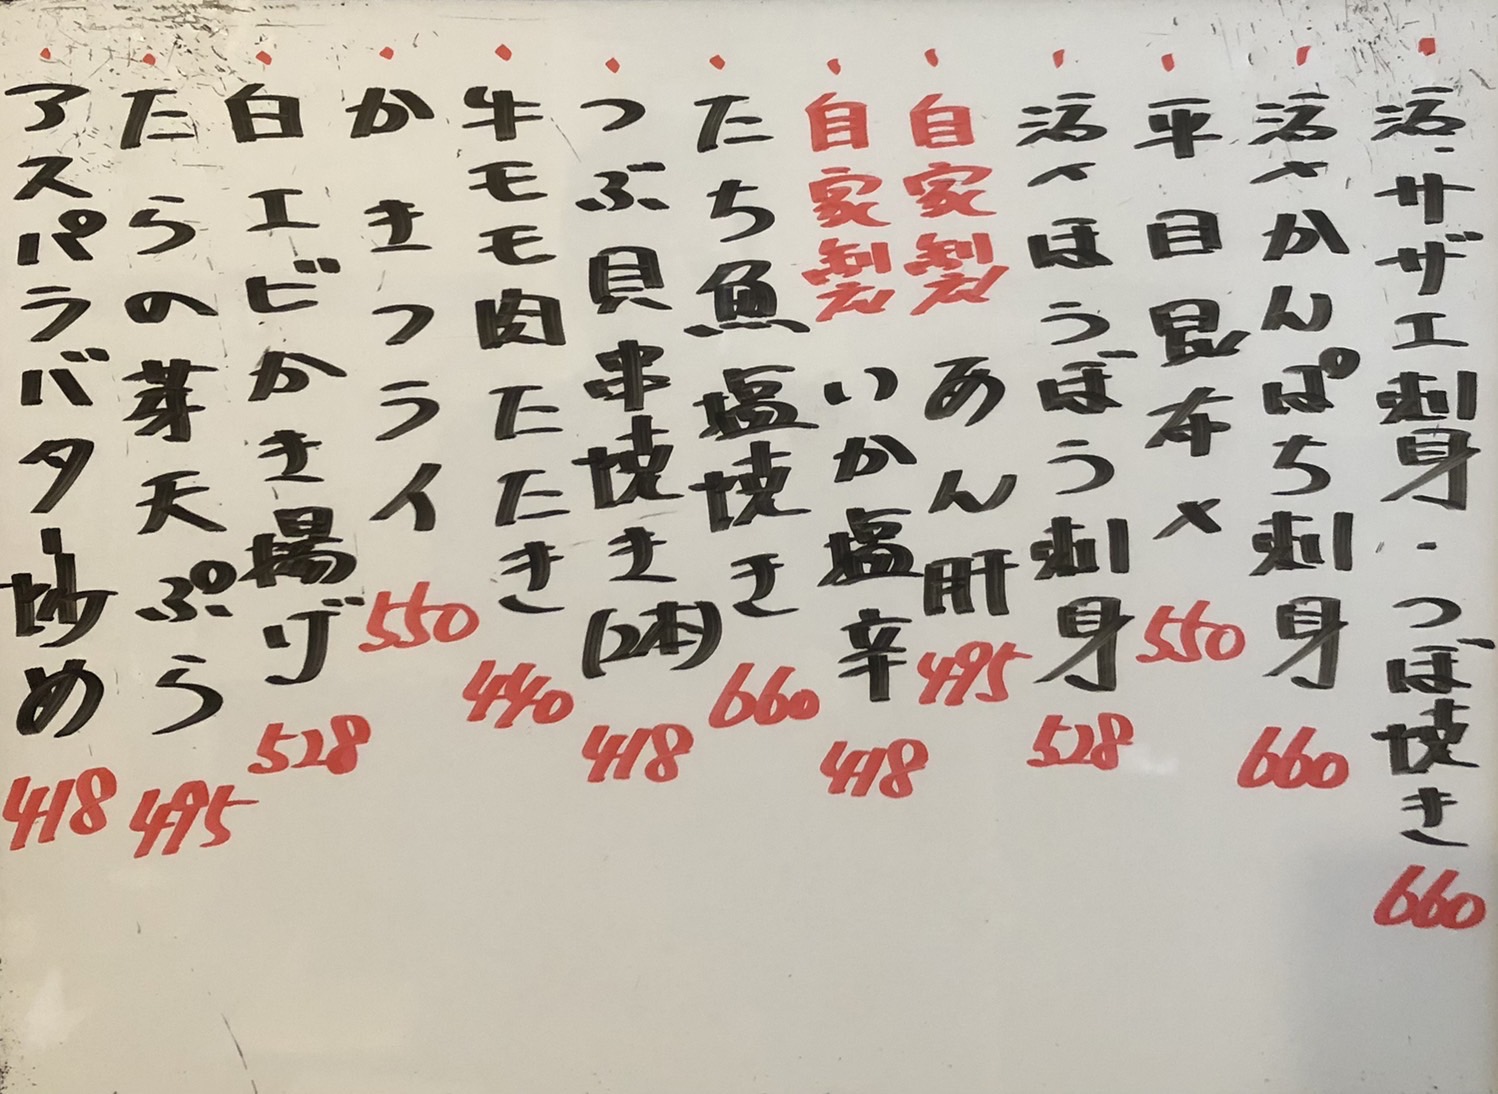 活〆サザエ刺身・つぼ焼き 660
活〆かんぱち刺身 660
平目昆布〆 550
活〆ほうぼう刺身 528
自家製 あん肝 495
自家製 いか塩辛 418
たち魚塩焼き 660
つぶ貝串焼き(2本) 418
牛モモ肉たたき 440
かきフライ 550
白エビかき揚げ 528
たらの芽天ぷら 495
アスパラバター炒め 418